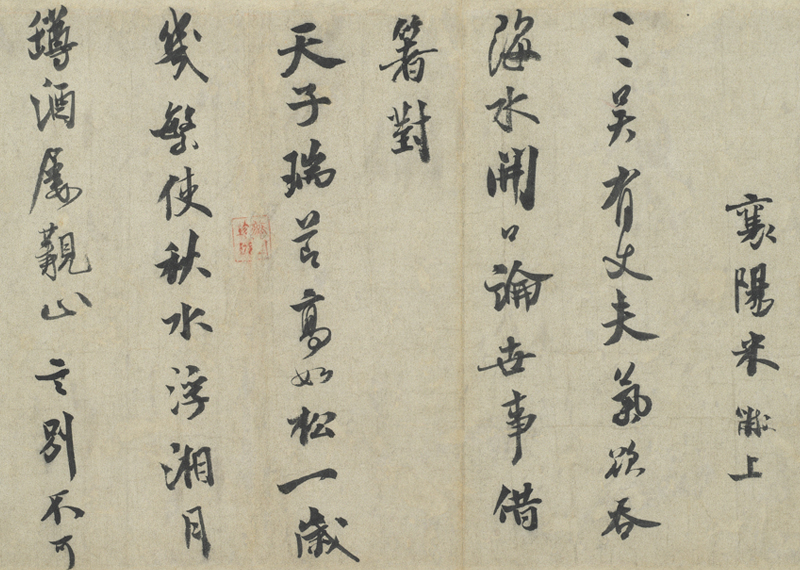 襄陽米黻上
三吳有丈夫氣欲吞
海水開口論世事借
箸對
天子瑞節高如松一歲
幾繁使秋水浮湘月
罇酒屢覯止言別不可